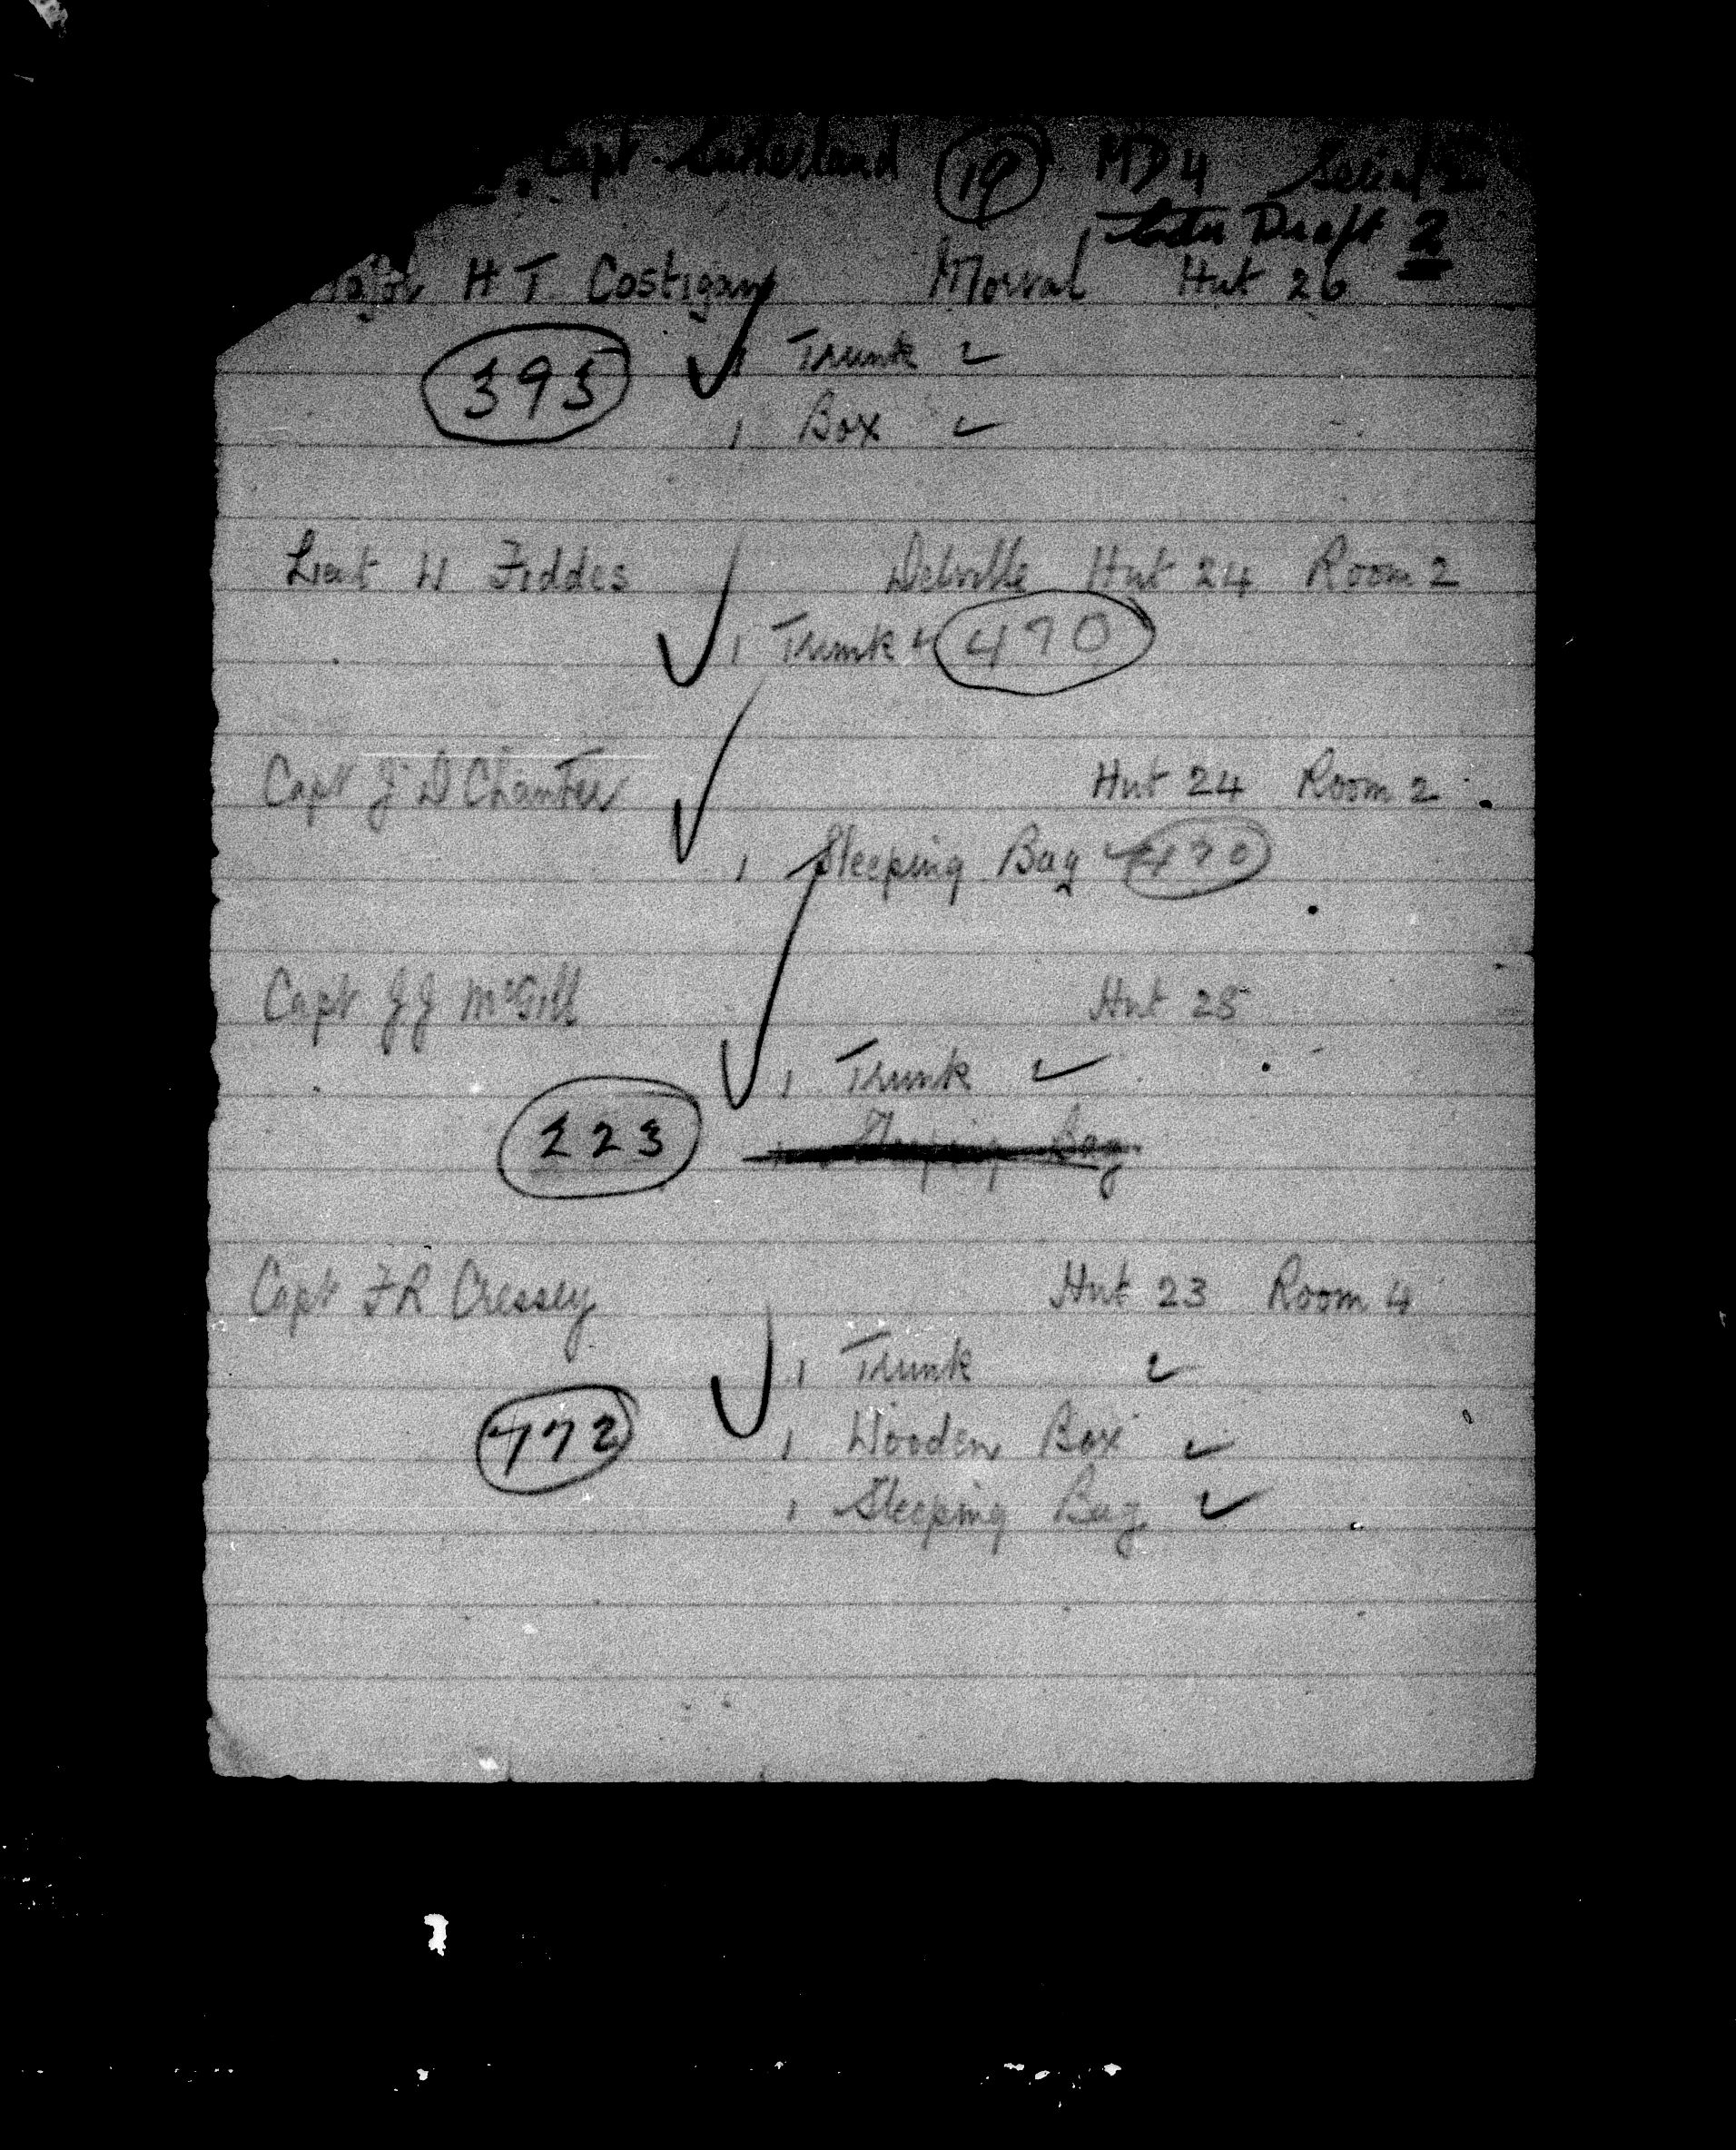 Capt. Sutherland (19) MD4 Serial
Later Draft 2
Major H T Costigan Morval Hut 26
393 ✓ 1 Trunk ✓
1 Box ✓
Lieut W Fiddes Delville Hut 24 Room 2
✓ 1 Trunk ✓ 470
Capt J D Chamber ✓ Hut 24 Room 2
1 Sleeping Bag ✓ 430
Capt J J McGill Hut 25
✓ 1 Trunk ✓
223 1 Sleeping Bag
Capt F R Cressey Hut 23 Room 4
✓ 1 Trunk ✓
772 1 Wooden Box ✓
1 Sleeping Bag ✓